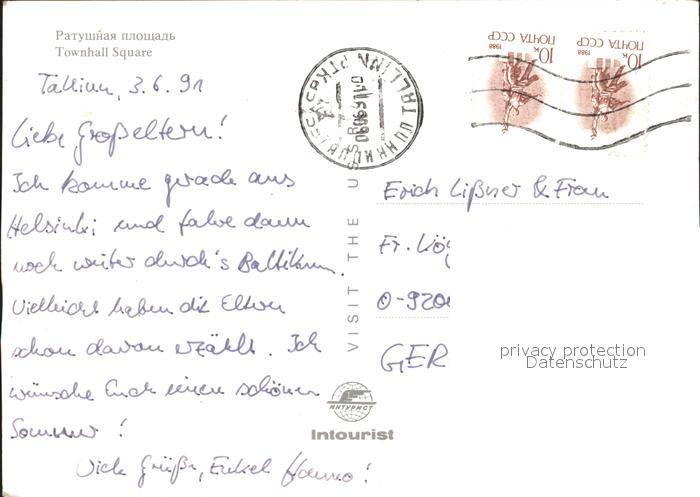 Ратушная площадь
Townhall Square
Tallinn, 3.6.91
Liebe Großeltern!
Ich komme gerade aus
Helsinki und fahre dann
noch weiter durch's Baltikum.
Vielleicht haben die Eltern
schon davon erzählt. Ich
wünsche Euch einen schönen
Sommer!
Viele Grüße, Enkel Hanno!
VISIT THE U
ИНТУРИСТ
Intourist
TALLINN
10к ПОЧТА СССР 1988
10к ПОЧТА СССР 1988
Erich Lißner & Frau
Fr.
O-920
GER
privacy protection
Datenschutz